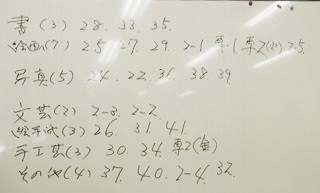 書(3) 28. 33. 35.
絵画(7) 25. 27. 29. 2-1 専1 専2(知) 2-5.
写真(5) 24. 22. 36. 38. 39.
文芸(2) 2-3. 2-2.
絵手紙(3) 26. 31. 41.
手工芸(3) 30. 34. 専2(缶)
その他(4) 37. 40. 2-4. 32.